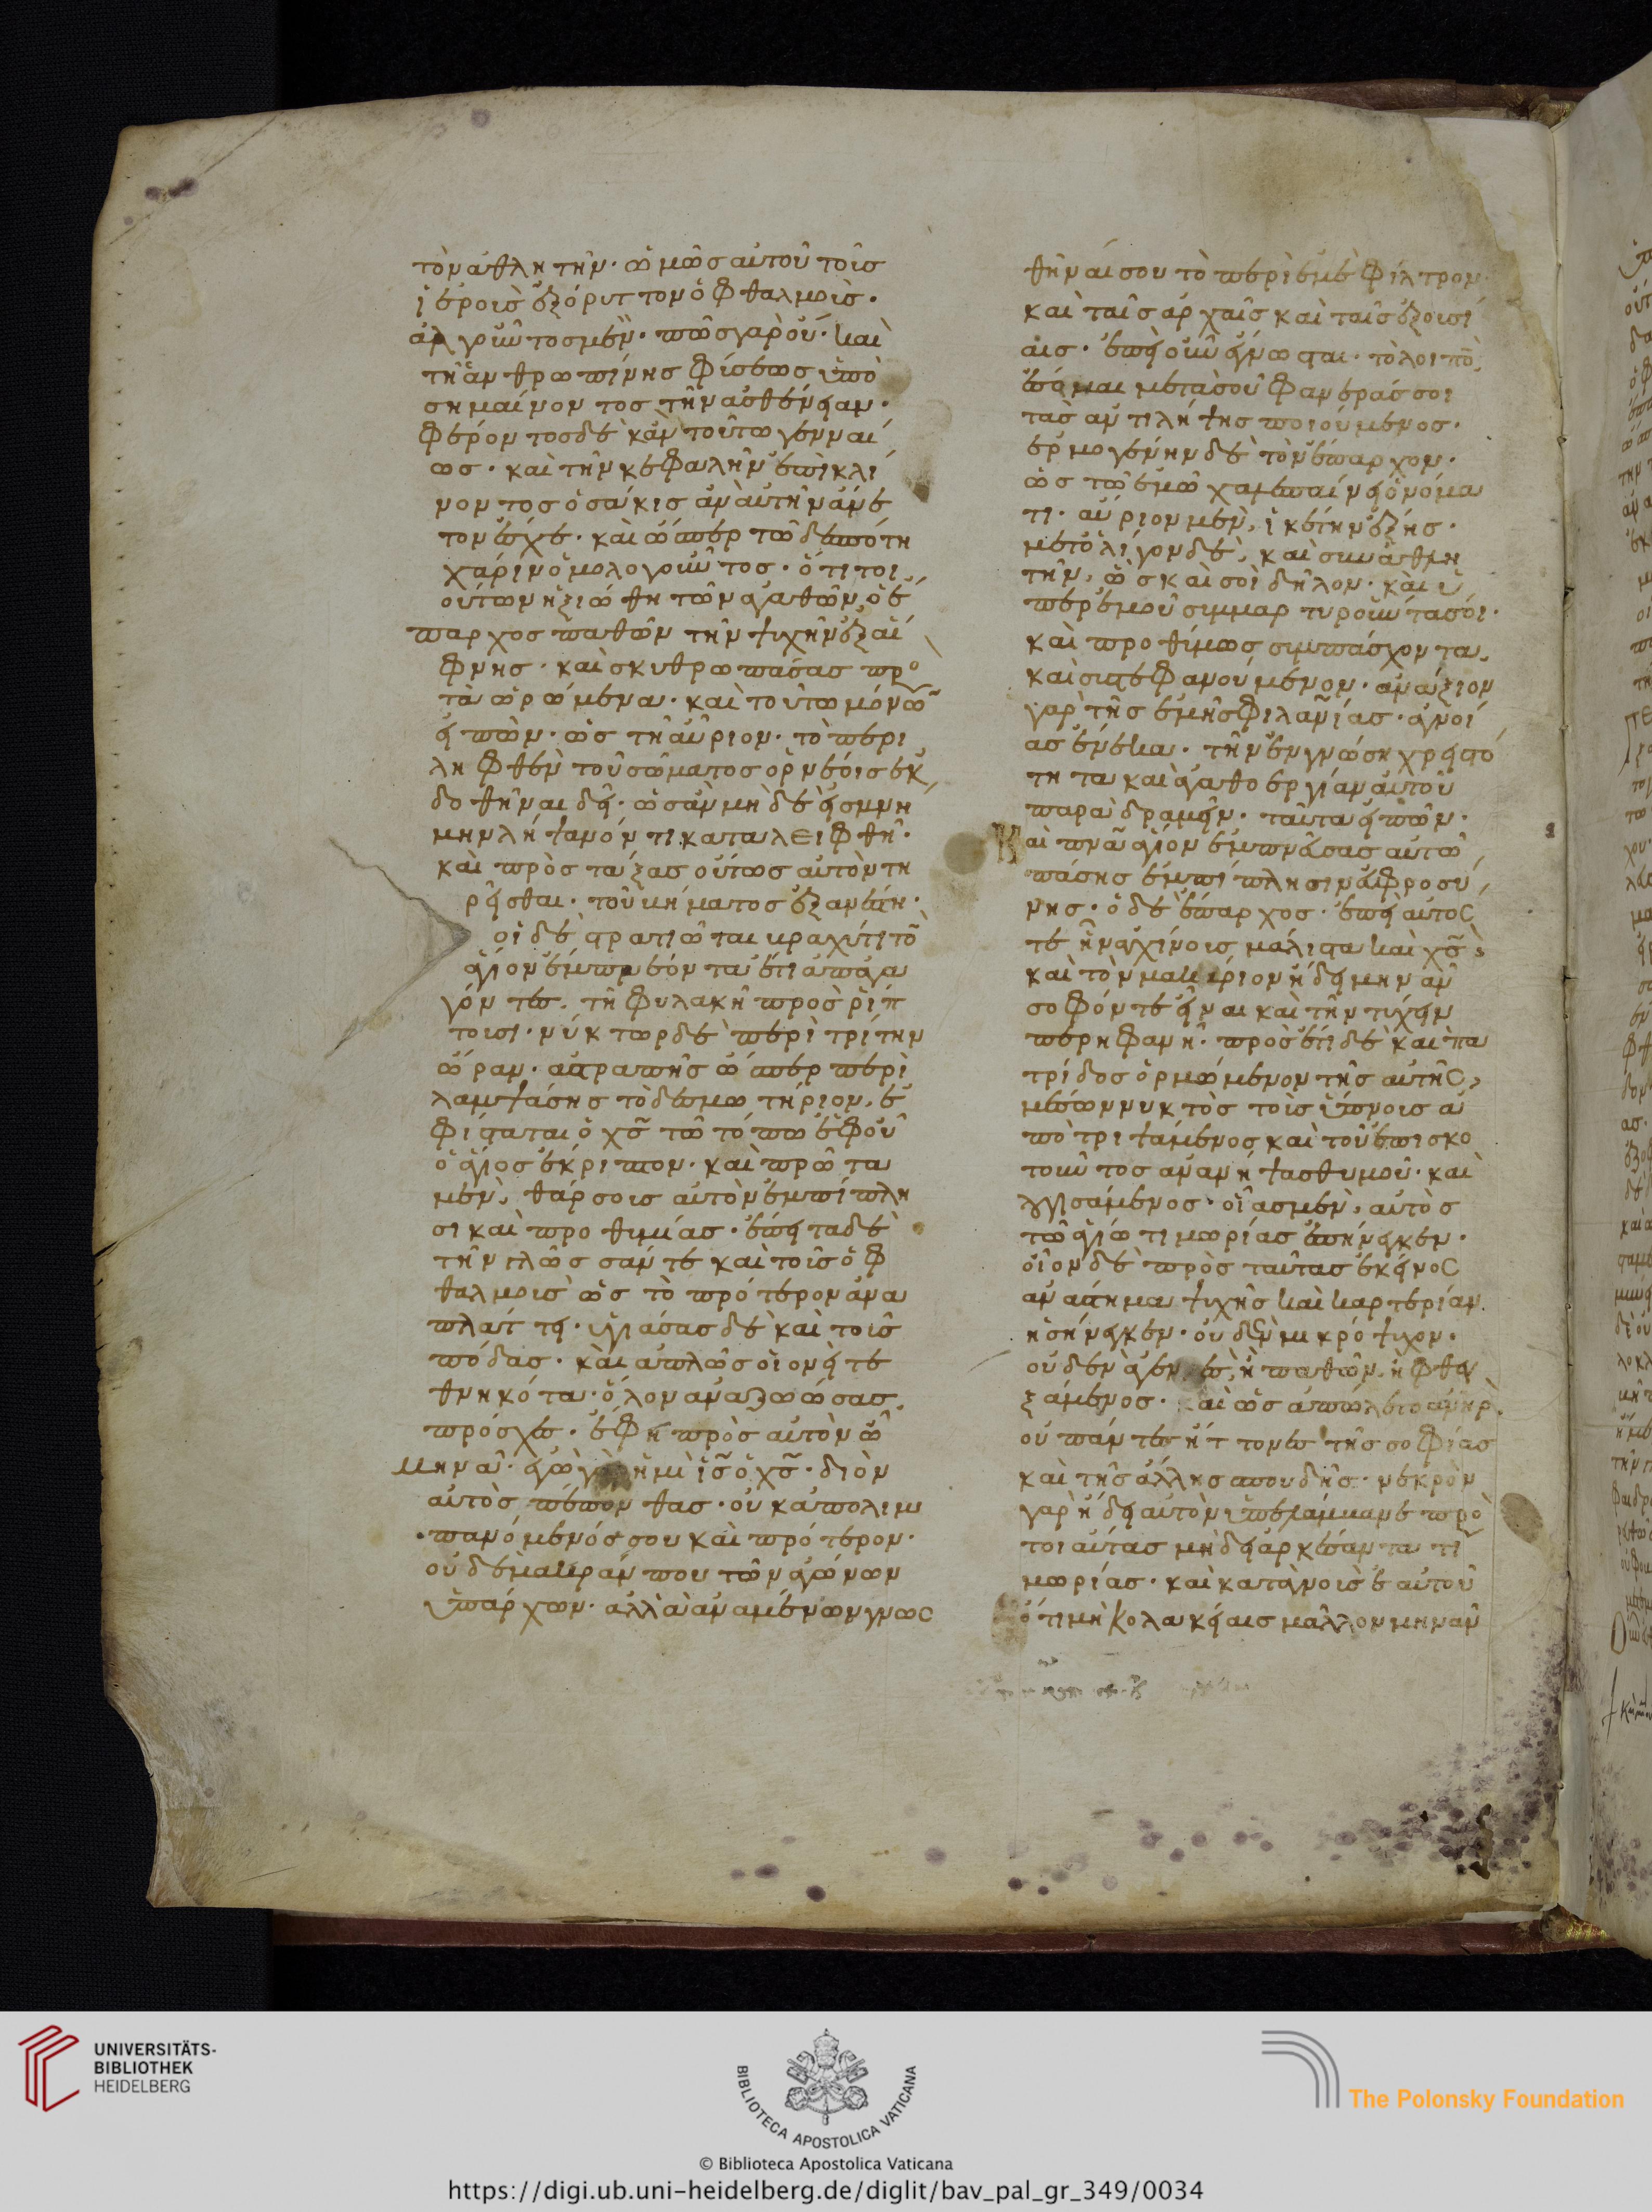 τὸν ἀθλητὴν· ὁμῶς αὐτοῦ τοῖς
ἱεροῖς ἐξόρυττον ὀφθαλμοῖς·
ἀλγοῦντος μὲν· πῶς γὰρ οὔ· καὶ
τῆ ἀνθρωπίνης φύσεως ὑπο
σημαίνοντος τὴν ἀσθένειαν·
φέροντος δὲ κἀν τούτω γενναί
ως· καὶ τὴν κεφαλὴν ἐπικλί
νοντος ὁσάκις ἂν αὐτὴν ἄνε
τον ἔσχε· καὶ ὥσπερ τῶ δεσπότη
χάριν ὁμολογοῦντος· ὅτι τοι
οὕτων ἠξιώθη τῶν ἀγαθῶν· ὁ ἔ
παρχος παθὼν τὴν ψυχὴν ἐξαί
φνης· καὶ σκυθρωπάσας προ
τὰ ὁρώμενα· καὶ τοῦτω μόνω
εἰπὼν· ὡς τῆ αὔριον· τὸ περι
ληφθὲν τοῦ σώματος ὀρνέοις ἐκ
δοθῆναι δεῖ· ὡς ἂν μὴ δὲ εἰσμνη
μην λείψανόν τι καταλειφθῆ·
καὶ προστάξας οὕτως αὐτὸν τη
ρεῖσθαι· τοῦ βήματος ἐξανέστη·
οἱ δὲ στρατιῶται βραχύτι τὸ
ἅγιον ἐμπνέοντα ἔτι ἀπαγα
γόντες· τῆ φυλακῆ προσρίπ
τουσι· νύκτωρ δὲ περὶ τρίτην
ὥραν· ἀστραπῆς ὥσπερ περι
λαμψάσης τὸ δεσμωτήριον, ἐ
φίσταται ὁ χς τῶ τόπω ἐφ οὗ
ὁ ἅγιος ἔκριπτον· καὶ πρῶτα
μὲν, θάρσους αὐτὸν ἐμπίπλη
σι καὶ προθυμίας· ἔπειτα δὲ
τὴν γλῶσσάν τε καὶ τοῖς ὀφ
θαλμοῖς ὡς τὸ πρότερον ἀνα
πλάττει· ὑγιάσας δὲ καὶ τοῖς
πόδας· καὶ ἁπλῶς οἱονεί τε
θνηκότα· ὅλον ἀναζωώσας,
πρόσχες· ἔφη πρὸς αὐτὸν ὦ
Μηνᾶ· ἐγὼ γὰρ ἠμὶ ἰς ὁ χς· δι ὃν
αὐτὸς πέπονθας· οὐκ ἀπολιμ
πανόμενός σου καὶ πρότερον·
οὐδὲ μακράν που τῶν ἀγώνων
ὑπάρχων· ἀλλὰ ἀναμένων γνωσ
θῆναί σου τὸ περὶ ἐμὲ φίλτρον·
καὶ ταῖς ἀρχαῖς καὶ ταῖς ἐξουσί
αις· ἐπεὶ οὖν ἔγνωσται· τὸ λοιπὸ
ἔσομαι μετὰ σοῦ φανεράς σοι
τὰς ἀντιλήψης ποιούμενος·
ἑρμογένην δὲ τὸν ἔπαρχον·
ὡς τῶ ἐμῶ χαμεπαίνει ὀνόμα
τι· αὔριον μὲν, ἱκέτην ἕξης·
μετ ὀλίγον δὲ, καὶ συναθλη
τὴν, ὡς καὶ σοὶ δῆλον· καὶ ὑ
πὲρ ἐμοῦ συμμαρτυροῦντα σοι·
καὶ προθύμως συμπάσχοντα,
καὶ συστεφανούμενον· ἀνάξιον
γὰρ τῆς ἐμῆς φιλανίας· ἀγνοί
ας ἕνεκα· τὴν ἐν γνώση χρηστό
τητα καὶ ἀγαθοεργίαν αὐτοῦ
παραδραμεῖν· ταῦτα εἰπὼν·
Καὶ πνα ἅγιον ἐμπνεύσας αὐτῶ
πάσης ἐμπίπλησιν εὐφροσύ
νης· ὁ δὲ ἔπαρχος· ἐπεὶ αὐτός
τε ἦν ἀγχίνοις μάλιστα καὶ χς
καὶ τὸν μακάριον ᾔδει μηνᾶν
σοφόν τε εἶναι καὶ τὴν τύχην
περηφανῆ· πρὸς ἔτι δὲ καὶ πα
τρίδος ὁρμώμενον τῆς αὐτῆς,
μέσων νυκτὸς τοῖς ὕπνοις ἀ
ποτριψάμενος καὶ τοῦ ἐπισκο
τοῦντος ἀνανήψας θυμοῦ· καὶ
λογισάμενος· οἵας μὲν, αὐτὸς
τῶ ἁγίω τιμωρίας ἐπήνεγκεν·
οἷον δὲ πρὸς ταύτας ἐκεῖνος
ἀνάστημα ψυχῆς καὶ καρτερίαν
εἰσήνεγκεν· οὐδὲν μικρόψυχον·
οὐδὲν ἀγεννὲς, ἢ παθὼν, ἢ φθεγ
ξάμενος· καὶ ὡς ἀπώλετο ἀνὴρ,
οὐ πάντες ἥττονες τῆς σοφίας
καὶ τῆς ἄλλης σπουδῆς· νεκρὸν
γὰρ ἤδη αὐτὸν ὑπελάμβανε πρὸ
τοιαύτας μὴ δὲ ἀρκέσαντα τι
μωρίας· καὶ κατανοῖς ἑαυτοῦ
ὅτι μὴ κολακείαις μᾶλλον μηνᾶν
UNIVERSITÄTS-
BIBLIOTHEK
HEIDELBERG
BIBLIOTECA APOSTOLICA VATICANA
The Polonsky Foundation
© Biblioteca Apostolica Vaticana
https://digi.ub.uni-heidelberg.de/diglit/bav_pal_gr_349/0034